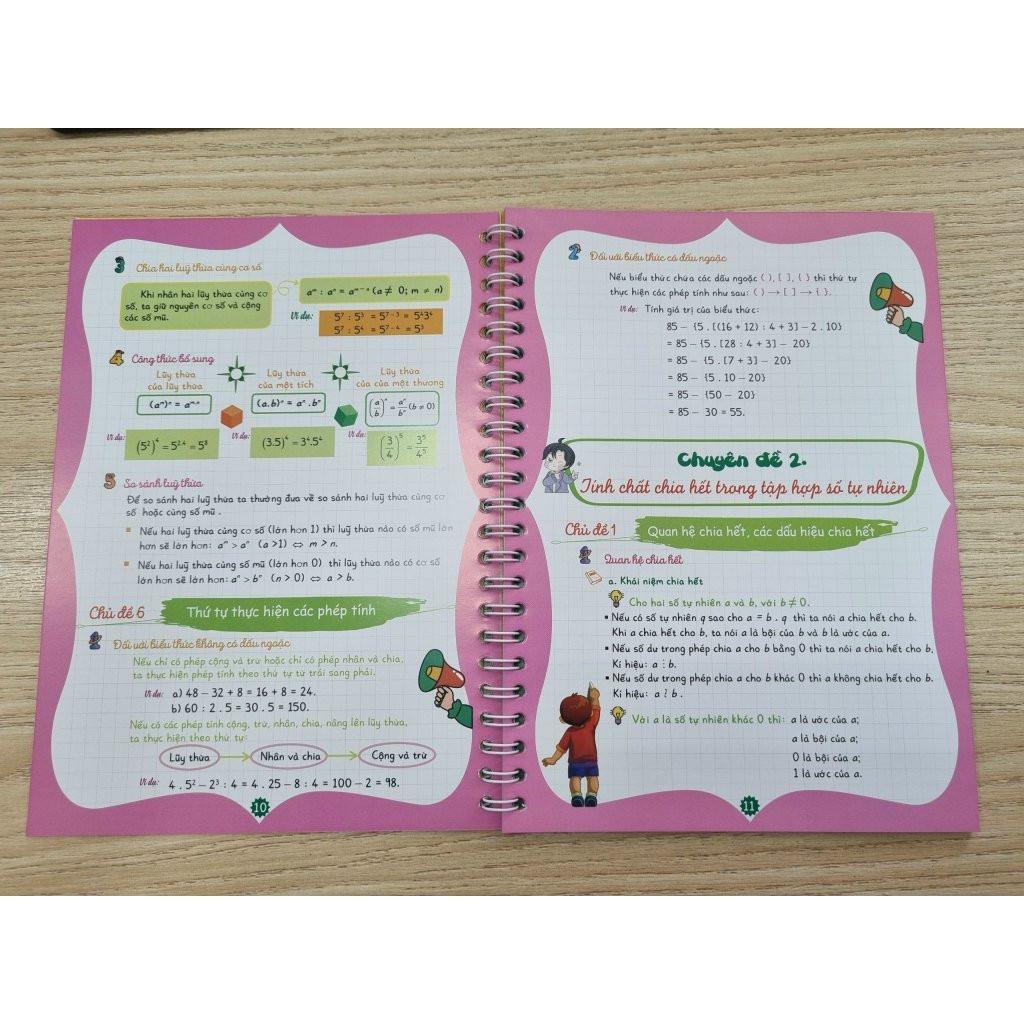 3 Chia hai luỹ thừa cùng cơ số
Khi nhân hai lũy thừa cùng cơ
số, ta giữ nguyên cơ số và cộng
các số mũ.
aᵐ : aⁿ = aᵐ⁻ⁿ (a ≠ 0; m ≠ n)
Ví dụ:
5⁷ : 5³ = 5⁷⁻³ = 5⁴3⁴
5⁷ : 5⁴ = 5⁷⁻⁴ = 5³
4 Công thức bổ sung
Lũy thừa
của lũy thừa
(aᵐ)ⁿ = aᵐ·ⁿ
Ví dụ:
(5²)⁴ = 5²·⁴ = 5⁸
Lũy thừa
của một tích
(a.b)ⁿ = aⁿ.bⁿ
Ví dụ:
(3.5)⁴ = 3⁴.5⁴
Lũy thừa
của của một thương
(a/b)ⁿ = aⁿ/bⁿ (b ≠ 0)
Ví dụ:
(3/4)⁵ = 3⁵/4⁵
5 So sánh luỹ thừa
Để so sánh hai luỹ thừa ta thường đưa về so sánh hai luỹ thừa cùng cơ
số hoặc cùng số mũ.
▪ Nếu hai luỹ thừa cùng cơ số (lớn hơn 1) thì luỹ thừa nào có số mũ lớn
hơn sẽ lớn hơn: aᵐ > aⁿ (a >1) ⇔ m > n.
▪ Nếu hai luỹ thừa cùng số mũ (lớn hơn 0) thì luỹ thừa nào có cơ số
lớn hơn sẽ lớn hơn: aⁿ > bⁿ (n > 0) ⇔ a > b.
Chủ đề 6 Thứ tự thực hiện các phép tính
1 Đối với biểu thức không có dấu ngoặc
Nếu chỉ có phép cộng và trừ hoặc chỉ có phép nhân và chia,
ta thực hiện phép tính theo thứ tự từ trái sang phải.
Ví dụ: a) 48 – 32 + 8 = 16 + 8 = 24.
b) 60 : 2 . 5 = 30 . 5 = 150.
Nếu có các phép tính cộng, trừ, nhân, chia, nâng lên lũy thừa,
ta thực hiện theo thứ tự:
Lũy thừa → Nhân và chia → Cộng và trừ
Ví dụ: 4 . 5² – 2³ : 4 = 4 . 25 – 8 : 4 = 100 – 2 = 98.
10
2 Đối với biểu thức có dấu ngoặc
Nếu biểu thức chứa các dấu ngoặc ( ), [ ], { } thì thứ tự
thực hiện các phép tính như sau: ( ) → [ ] → { }.
Ví dụ: Tính giá trị của biểu thức:
85 – {5 . [(16 + 12) : 4 + 3] – 2 . 10}
= 85 – {5 . [28 : 4 + 3] – 20}
= 85 – {5 . [7 + 3] – 20}
= 85 – {5 . 10 – 20}
= 85 – {50 – 20}
= 85 – 30 = 55.
Chuyên đề 2.
Tính chất chia hết trong tập hợp số tự nhiên
Chủ đề 1 Quan hệ chia hết, các dấu hiệu chia hết
1 Quan hệ chia hết
a. Khái niệm chia hết
Cho hai số tự nhiên a và b, với b ≠ 0.
▪ Nếu có số tự nhiên q sao cho a = b . q thì ta nói a chia hết cho b.
Khi a chia hết cho b, ta nói a là bội của b và b là ước của a.
▪ Nếu số dư trong phép chia a cho b bằng 0 thì ta nói a chia hết cho b.
Kí hiệu: a ⋮ b.
▪ Nếu số dư trong phép chia a cho b khác 0 thì a không chia hết cho b.
Kí hiệu: a ⋮̸ b.
Với a là số tự nhiên khác 0 thì: a là ước của a;
a là bội của a;
0 là bội của a;
1 là ước của a.
11